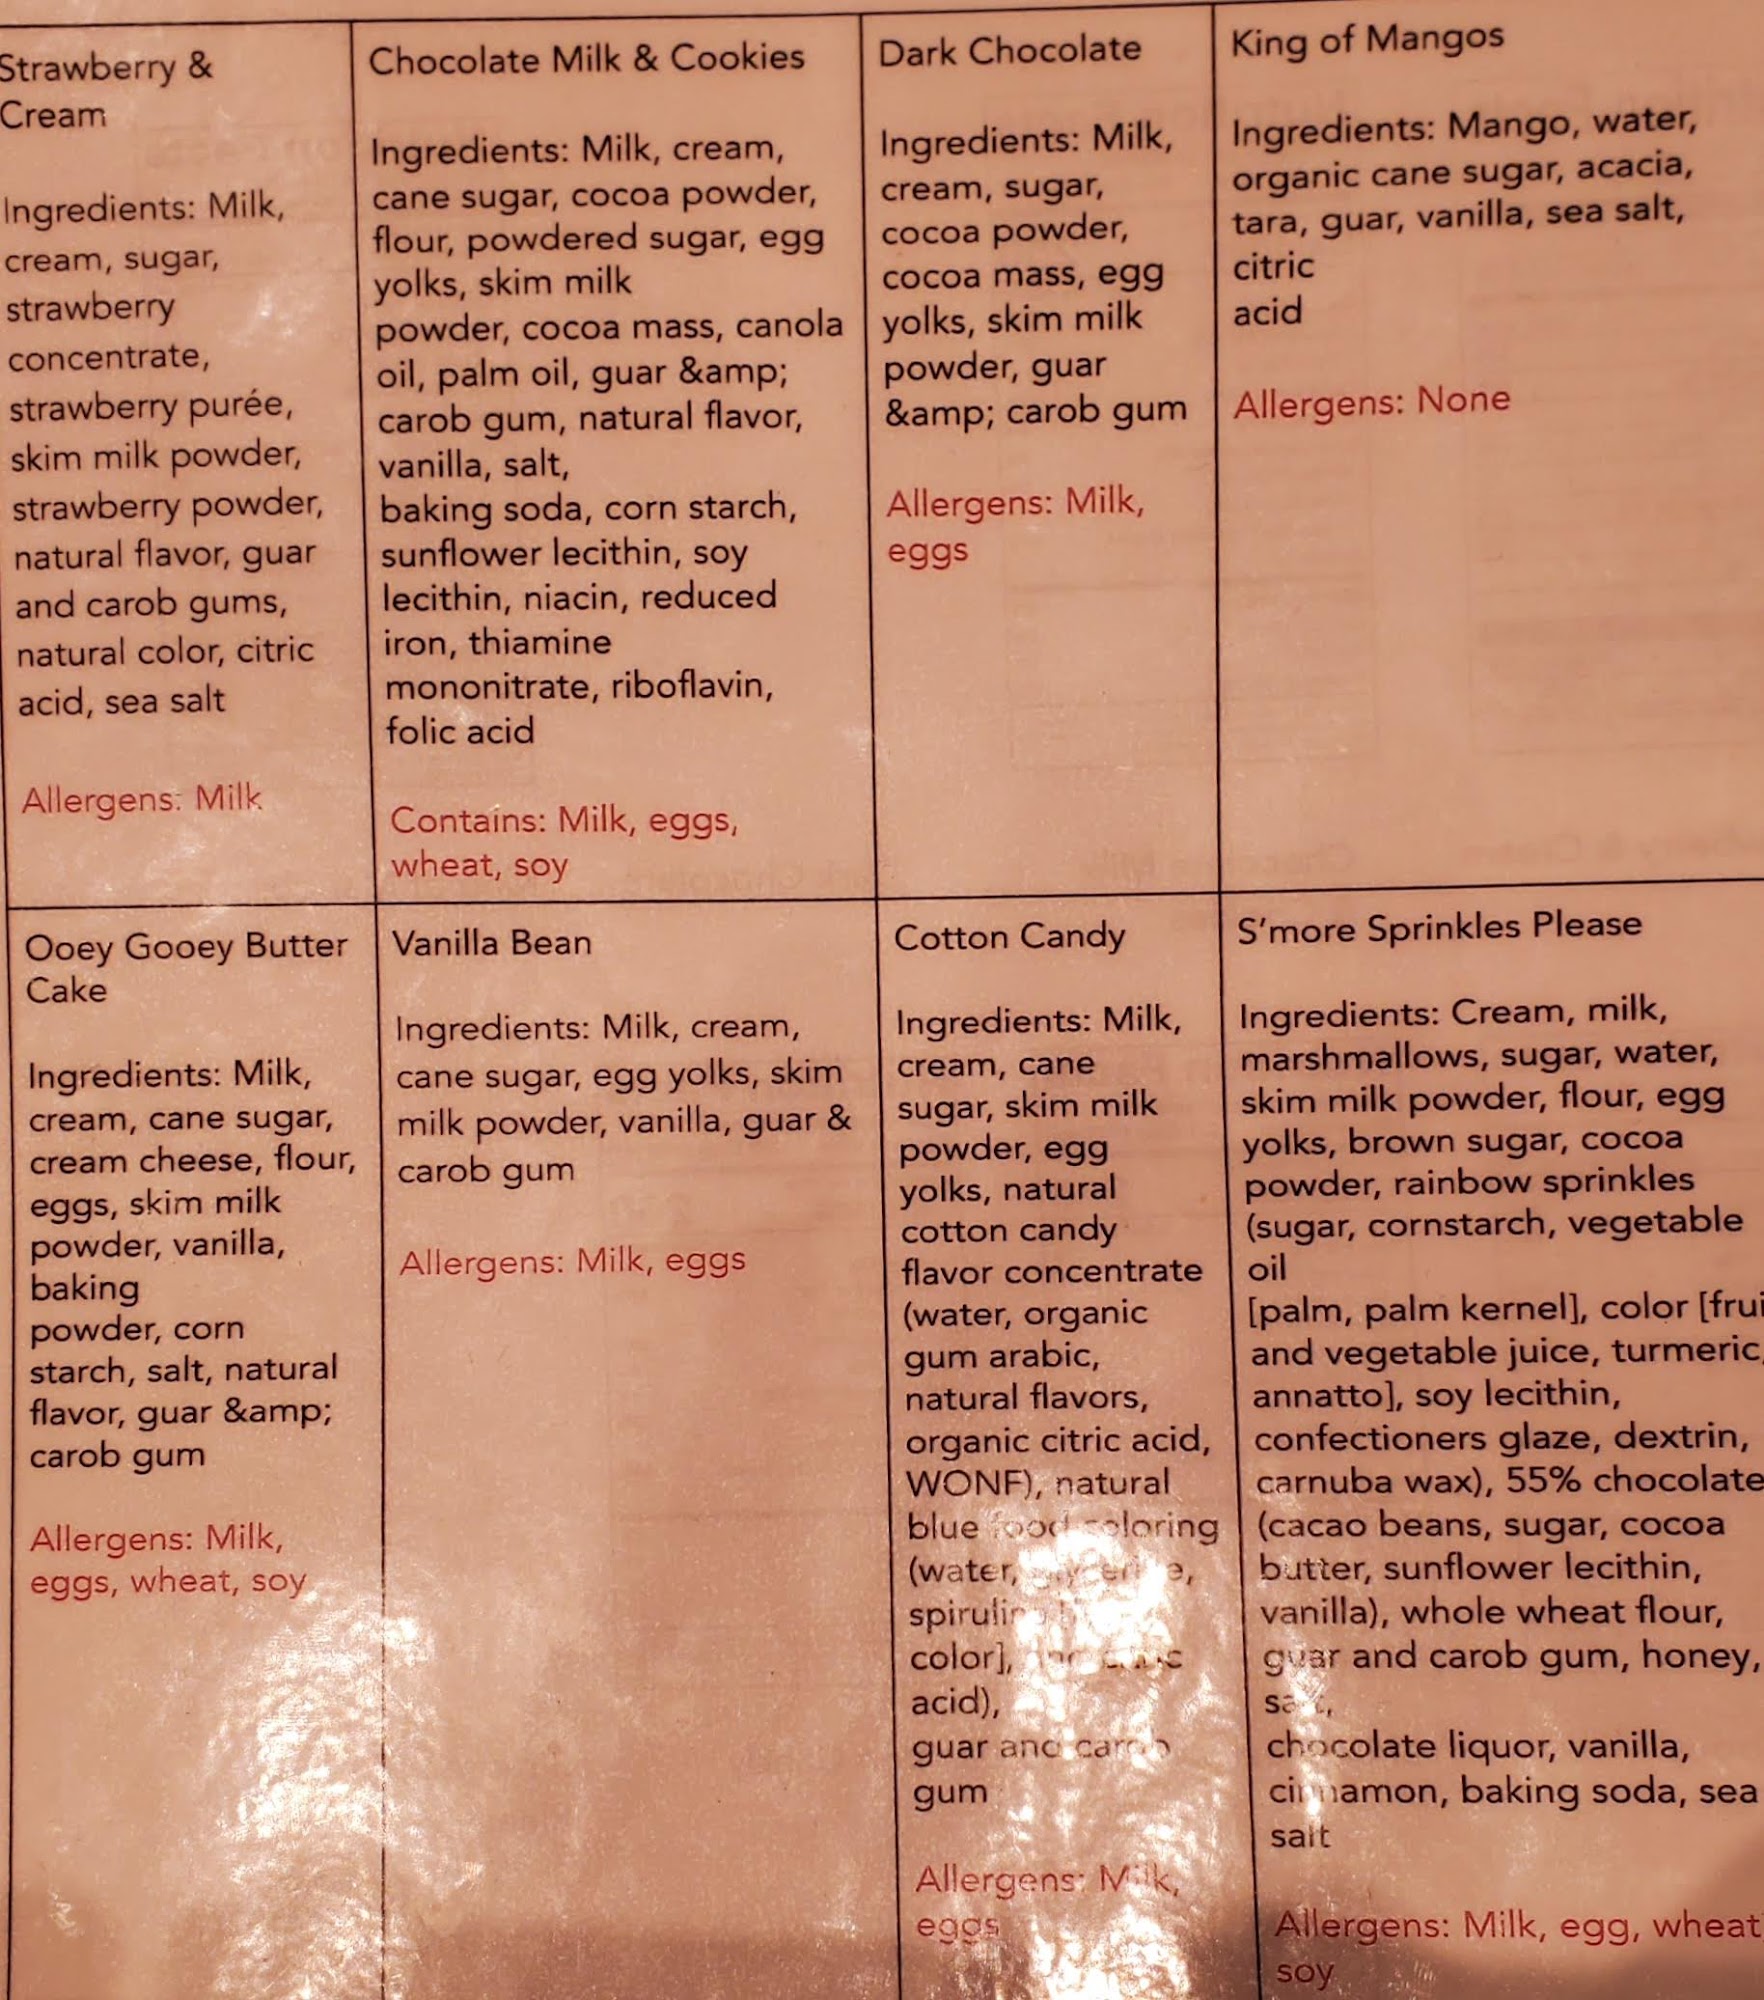 Strawberry &
Cream
Ingredients: Milk,
cream, sugar,
strawberry
concentrate,
strawberry purée,
skim milk powder,
strawberry powder,
natural flavor, guar
and carob gums,
natural color, citric
acid, sea salt
Allergens: Milk
Chocolate Milk & Cookies
Ingredients: Milk, cream,
cane sugar, cocoa powder,
flour, powdered sugar, egg
yolks, skim milk
powder, cocoa mass, canola
oil, palm oil, guar &amp;
carob gum, natural flavor,
vanilla, salt,
baking soda, corn starch,
sunflower lecithin, soy
lecithin, niacin, reduced
iron, thiamine
mononitrate, riboflavin,
folic acid
Contains: Milk, eggs,
wheat, soy
Dark Chocolate
Ingredients: Milk,
cream, sugar,
cocoa powder,
cocoa mass, egg
yolks, skim milk
powder, guar
&amp; carob gum
Allergens: Milk,
eggs
King of Mangos
Ingredients: Mango, water,
organic cane sugar, acacia,
tara, guar, vanilla, sea salt,
citric
acid
Allergens: None
Ooey Gooey Butter
Cake
Ingredients: Milk,
cream, cane sugar,
cream cheese, flour,
eggs, skim milk
powder, vanilla,
baking
powder, corn
starch, salt, natural
flavor, guar &amp;
carob gum
Allergens: Milk,
eggs, wheat, soy
Vanilla Bean
Ingredients: Milk, cream,
cane sugar, egg yolks, skim
milk powder, vanilla, guar &
carob gum
Allergens: Milk, eggs
Cotton Candy
Ingredients: Milk,
cream, cane
sugar, skim milk
powder, egg
yolks, natural
cotton candy
flavor concentrate
(water, organic
gum arabic,
natural flavors,
organic citric acid,
WONF), natural
blue food coloring
(water,
color],
acid),
guar and carob
gum
Allergens: Milk,
eggs
S'more Sprinkles Please
Ingredients: Cream, milk,
marshmallows, sugar, water,
skim milk powder, flour, egg
yolks, brown sugar, cocoa
powder, rainbow sprinkles
(sugar, cornstarch, vegetable
oil
[palm, palm kernel], color
and vegetable juice, turmeric,
annatto], soy lecithin,
confectioners glaze, dextrin,
carnuba wax), 55% chocolate
(cacao beans, sugar, cocoa
butter, sunflower lecithin,
vanilla), whole wheat flour,
guar and carob gum, honey,
salt,
chocolate liquor, vanilla,
cinnamon, baking soda, sea
salt
Allergens: Milk, egg, wheat
soy